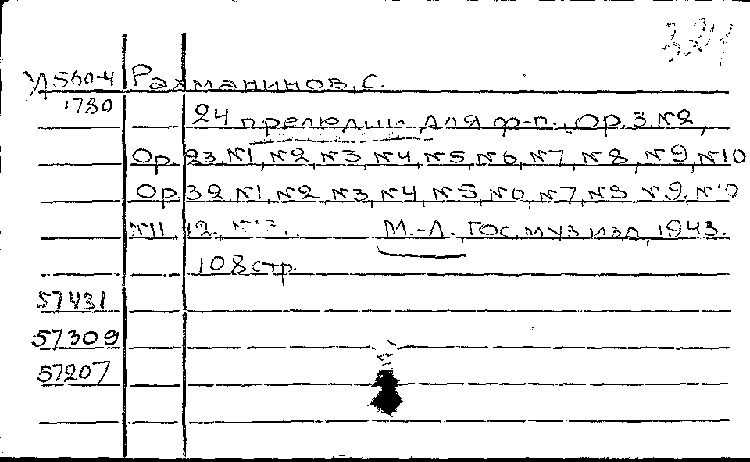 324
У560-4 Рахманинов, С.
1780
24 прелюдии для ф-п., Ор. 3 №2,
Ор. 23 №1, №2, №3, №4, №5, №6, №7, №8, №9, №10
Ор 32 №1, №2, №3, №4, №5, №6, №7, №8 №9, №10
№11, 12, №13. М.-Л. Гос. муз изд, 1943.
108 стр.
57431
57309
57207